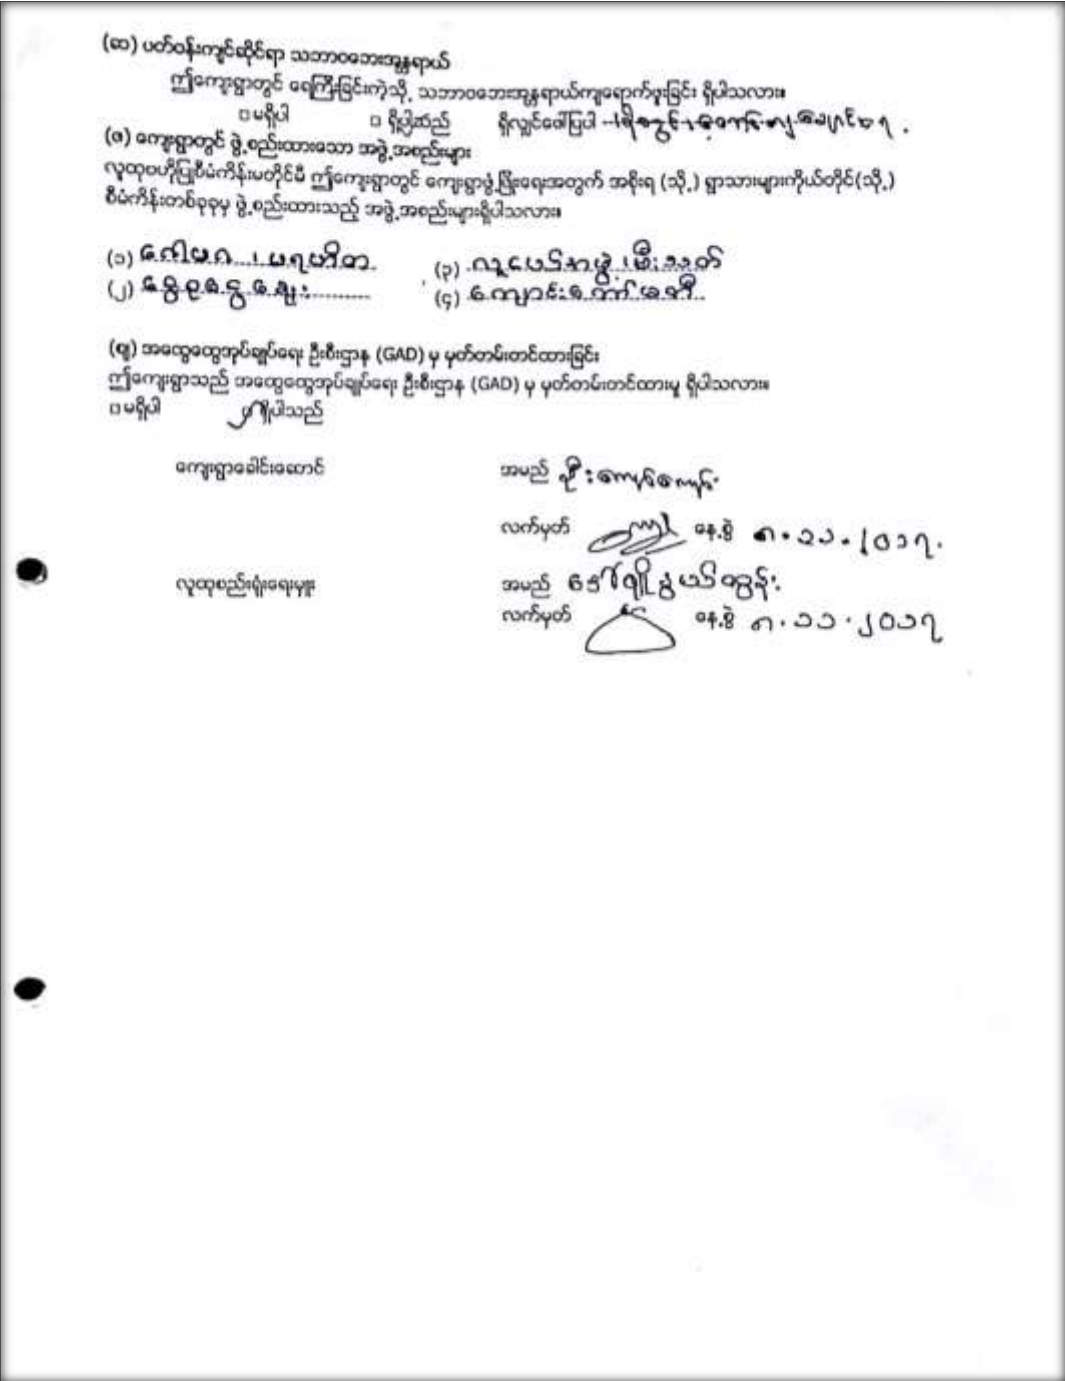 (ဆ) ပတ်ဝန်းကျင်ဆိုင်ရာ သဘာဝဘေးအန္တရာယ်
ဤကျေးရွာတွင် ရေကြီးခြင်းကဲ့သို့ သဘာဝဘေးအန္တရာယ်ကျရောက်ဖူးခြင်း ရှိပါသလား။
□ မရှိပါ □ ရှိပါသည် ရှိလျှင်ဖော်ပြပါ
(ဇ) ကျေးရွာတွင် ဖွဲ့စည်းထားသော အဖွဲ့အစည်းများ
လူထုဗဟိုပြုစီမံကိန်းမတိုင်မီ ဤကျေးရွာတွင် ကျေးရွာဖွံ့ဖြိုးရေးအတွက် အစိုးရ (သို့) ရွာသားများကိုယ်တိုင်(သို့)
စီမံကိန်းတစ်ခုခုမှ ဖွဲ့စည်းထားသည့် အဖွဲ့အစည်းများရှိပါသလား။
(၁) ဂေါပက ၊ ပရဟိတ (၃) လူငယ်နာဖွဲ့ ၊ မီးသတ်
(၂) ရွေစုငွေချေး (၄) ကျောင်းကော်မတီ
(ဈ) အထွေထွေအုပ်ချုပ်ရေး ဦးစီးဌာန (GAD) မှ မှတ်တမ်းတင်ထားခြင်း
ဤကျေးရွာသည် အထွေထွေအုပ်ချုပ်ရေး ဦးစီးဌာန (GAD) မှ မှတ်တမ်းတင်ထားမှု ရှိပါသလား။
□ မရှိပါ ရှိပါသည်
ကျေးရွာခေါင်းဆောင် အမည် ဦးကျော်ကျော်
လက်မှတ် နေ့စွဲ ၈.၁၁.၂၀၁၇.
လူထုစည်းရုံးရေးမှူး အမည် ဒေါ်ချို နွယ်ထွန်း
လက်မှတ် နေ့စွဲ ၈.၁၁.၂၀၁၇